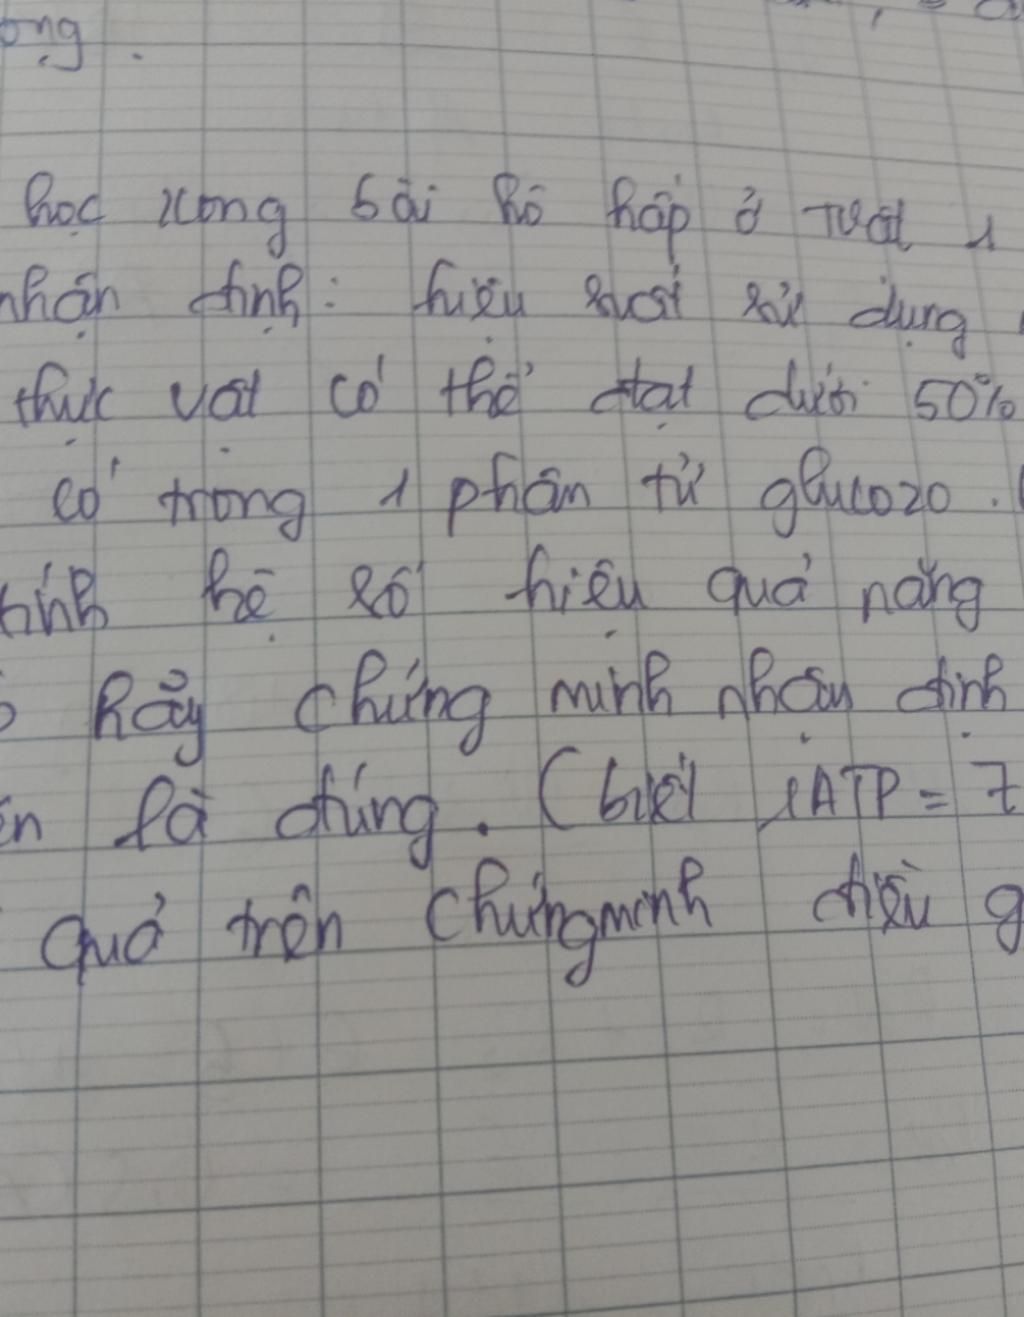 ọng.
học xong bài hô hấp ở TVật 1
nhận định: hiệu suất sử dụng
thực vật có thể đạt dưới 50%
có trong 1 phân tử glucozo.
hệ số hiệu quả năng
hãy chứng minh nhận định
là đúng. (biết 1ATP = 7
quả trên chứng minh điều g